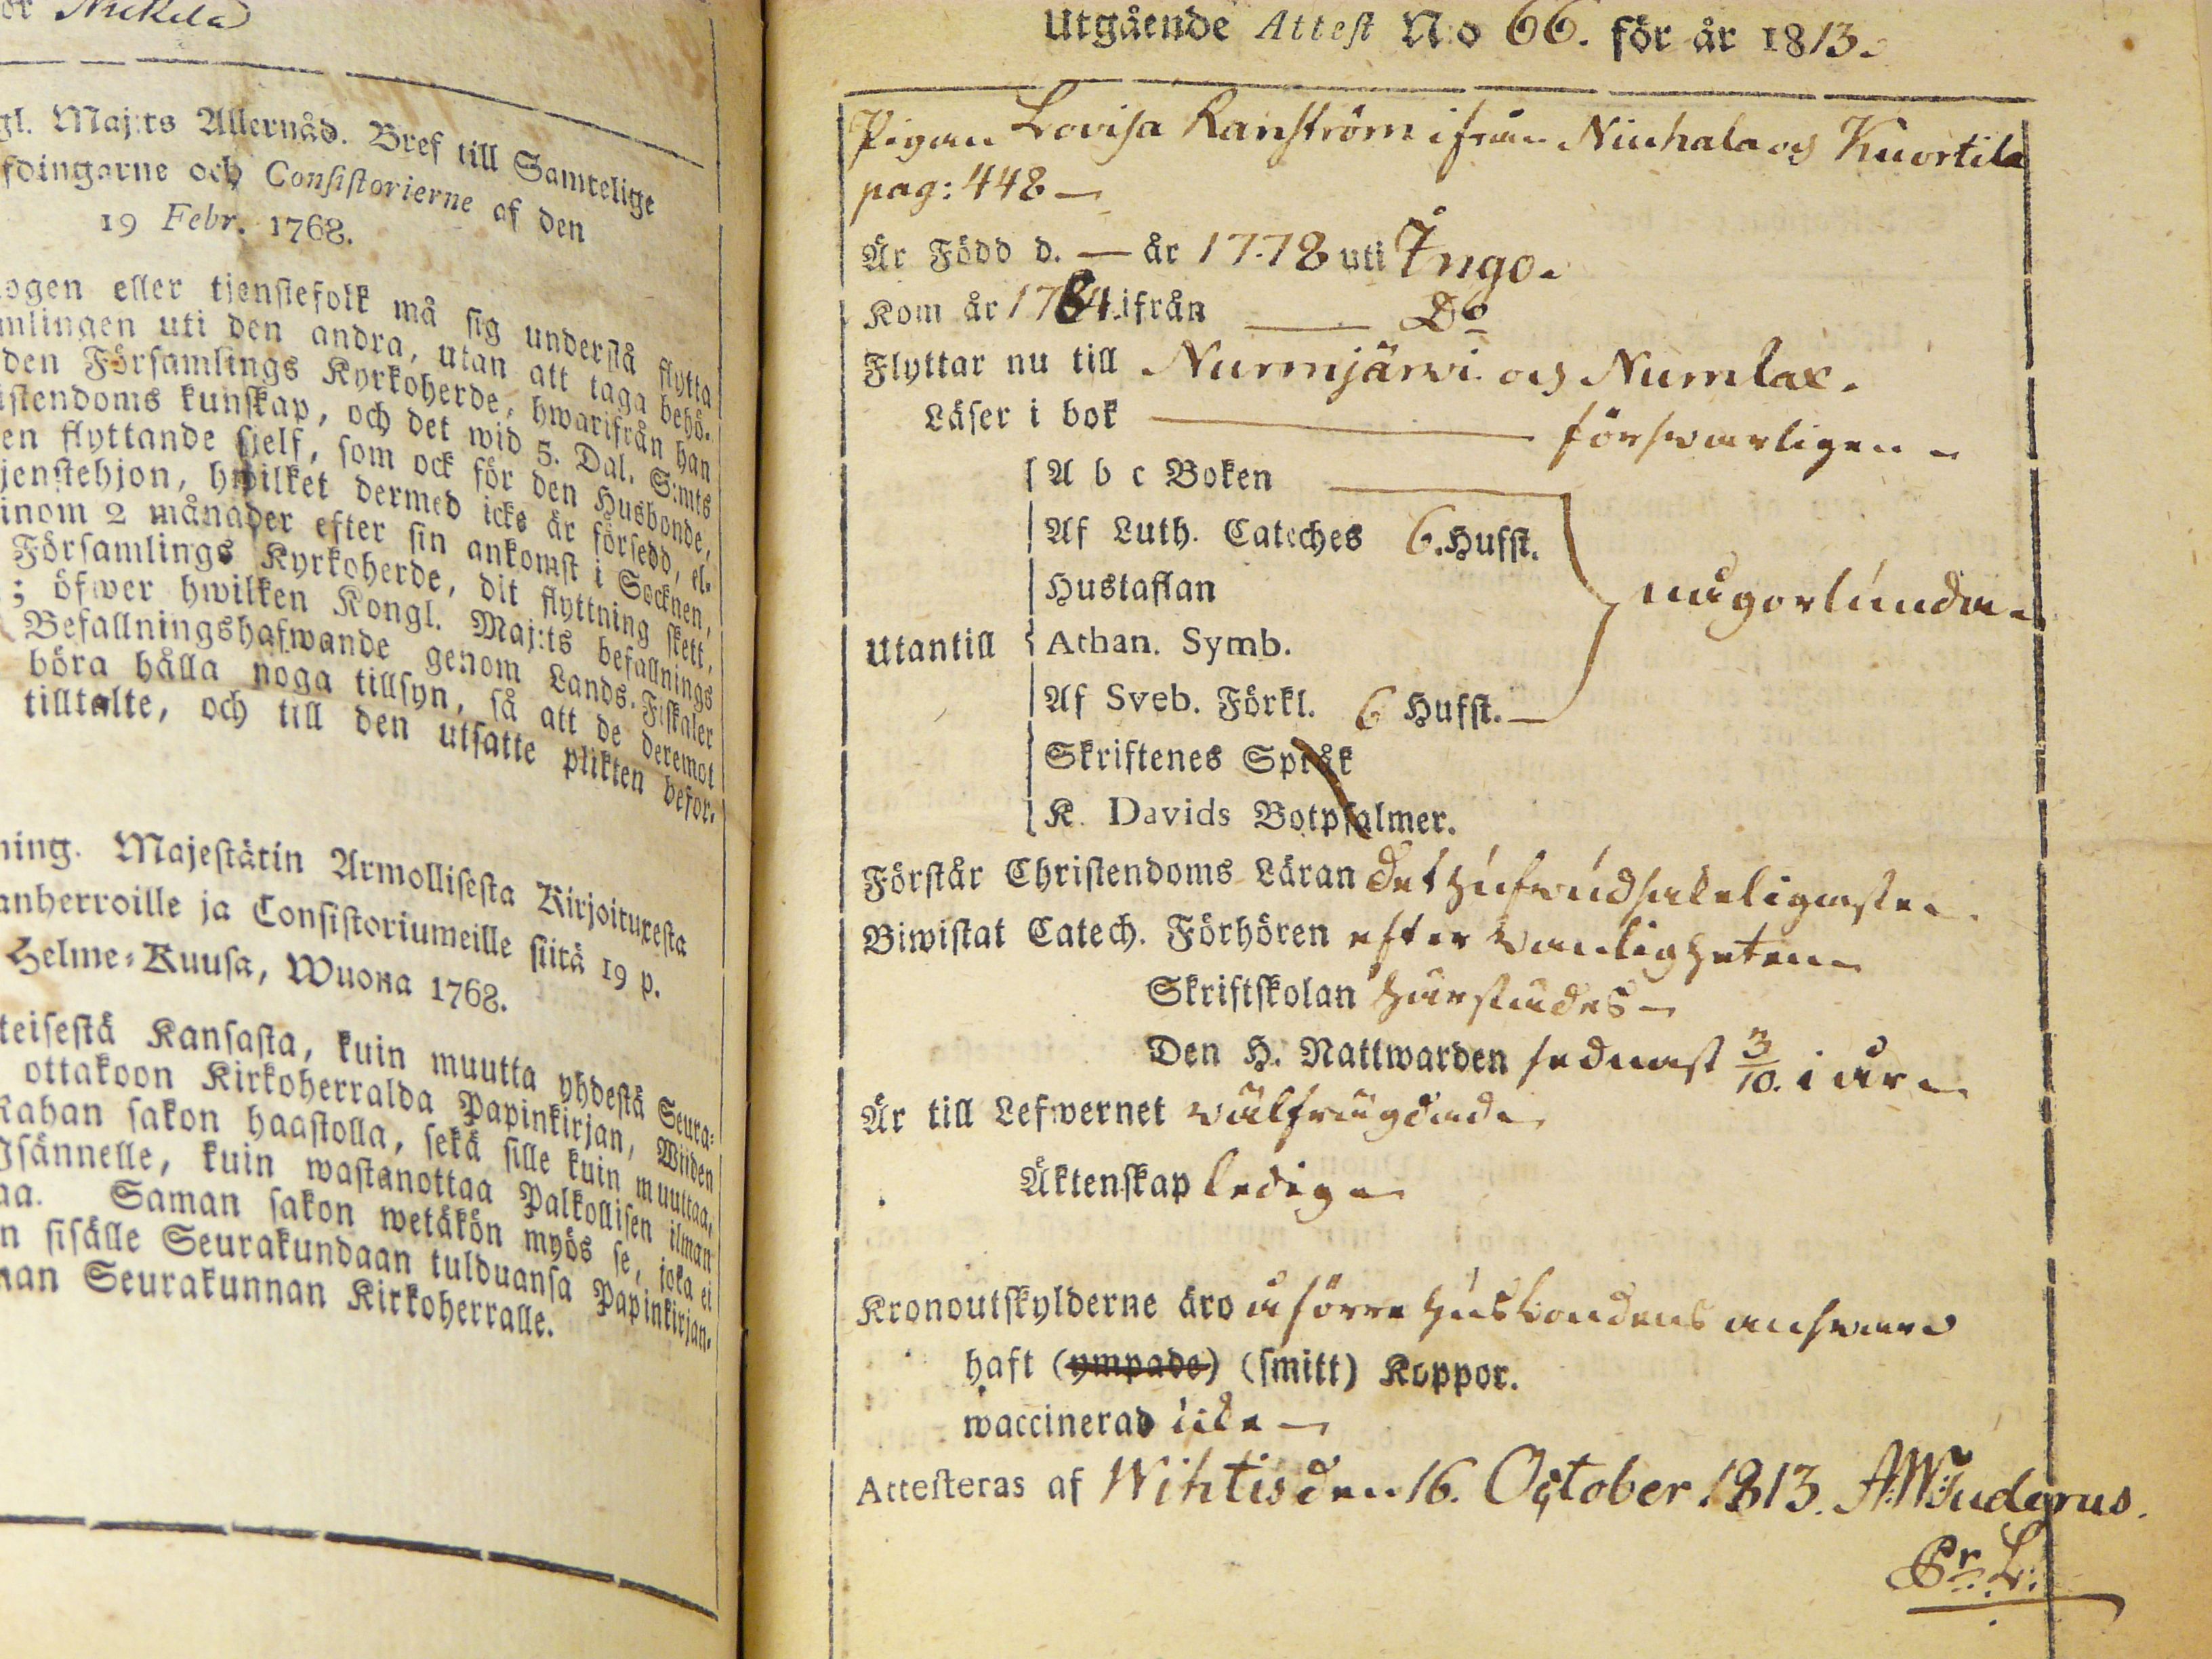 or Nickelä
gl. Maj:ts Allernåd. Bref till Samtelige
fdingarne och Consistorierne af den
19 Febr. 1768.
ogen eller tjenstefolk må sig understå flytta
mlingen uti den andra, utan att taga behö-
den Församlings Kyrkoherde, hwarifrån han
istendoms kunskap, och det wid 5. Dal. S:mts
en flyttande sjelf, som ock för den Husbonde,
jenstehjon, hwilket dermed icke är försedd, el-
inom 2 månader efter sin ankomst i Socknen,
Församlings Kyrkoherde, dit flyttning skett,
; öfwer hwilken Kongl. Maj:ts befallnings
Befallningshafwande genom Lands-Fiskaler
böra hålla noga tillsyn, så att de deremot
tilltalte, och till den utsatte plikten befor-
ning. Majestätin Armollisesta Kirjoituxesta
anherroille ja Consistoriumeille siitä 19 p.
Helme-Kuusa, Wuona 1768.
teisestä Kansasta, kuin muutta yhdestä Seura-
ottakoon Kirkoherralda Papinkirjan, Wiiden
Rahan sakon haastolla, sekä sille kuin muuttaa,
Isännelle, kuin wastanottaa Palkollisen ilman
aa. Saman sakon wetäkön myös se, joka ei
n sisälle Seurakundaan tulduansa Papinkirjan-
nan Seurakunnan Kirkoherralle.
Utgående Attest N:o 66. för år 1813.
Pigan Lovisa Ranström ifrån Niuhala og Kuortila
pag: 448 —
Är Född d. — år 1778 uti Ingo.
Kom år 1784 ifrån — Do
Flyttar nu till Nurmjärwi og Numlax.
Läser i bok — försvarligen
A b c Boken
Af Luth. Cateches 6. Hufst.
Hustaflan
någorlunda
Utantill Athan. Symb.
Af Sveb. Förkl. 6 Hufst.
Skriftenes Språk
K. Davids Botpsalmer.
Förstår Christendoms Läran det hufvudsakeligaste
Biwistat Catech. Förhören efter vanligheten
Skriftskolan härstädes
Den H. Nattwarden sednast 3/10. i år
Är till Lefwernet välfrägdad
Äktenskap ledig
Kronoutskylderne äro å förre husbondens answar
haft (ympade) (smitt) Koppor.
waccinerad icke —
Attesteras af Wihtis den 16. October 1813. A:W:Indgrus.